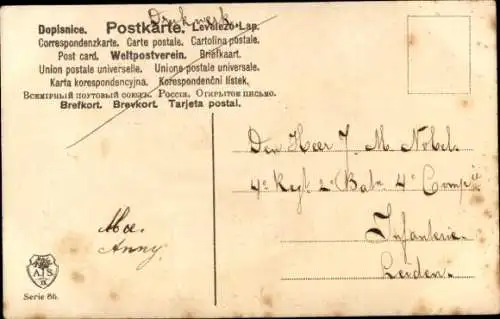 Drukwerk
Dopisnice. Postkarte. Levelező-Lap.
Correspondenzkarte. Carte postale. Cartolina postale.
Post card. Weltpostverein. Briefkaart.
Union postale universelle. Unione postale universale.
Karta korespondencyjna. Korespondenční lístek.
Всемірный почтовый союзъ. Россія. Открытое письмо.
Brefkort. Brevkort. Tarjeta postal.
Den Heer J. M. Nobel.
4e Regt 2e Batn 4e Compie
Infanterie
Leiden.
Anny.
A S
Serie 86.